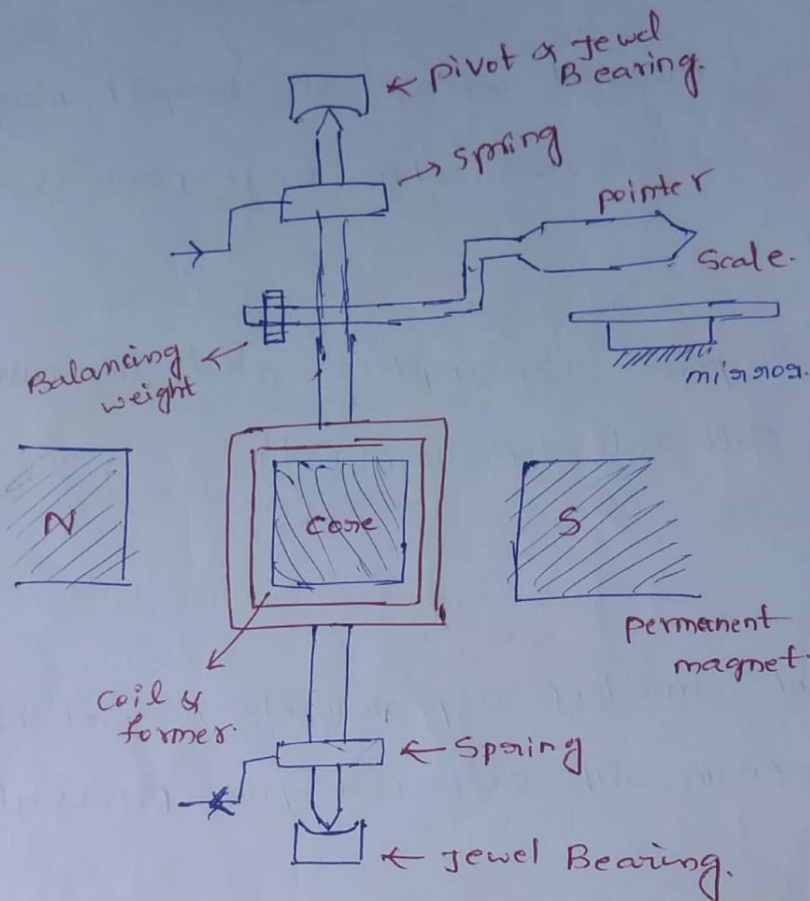 pivot & Jewel
Bearing.
Spring
pointer
Scale.
mirror.
Balancing
weight
N
Core
S
permenent
magnet.
Coil &
former.
Spring
Jewel Bearing.